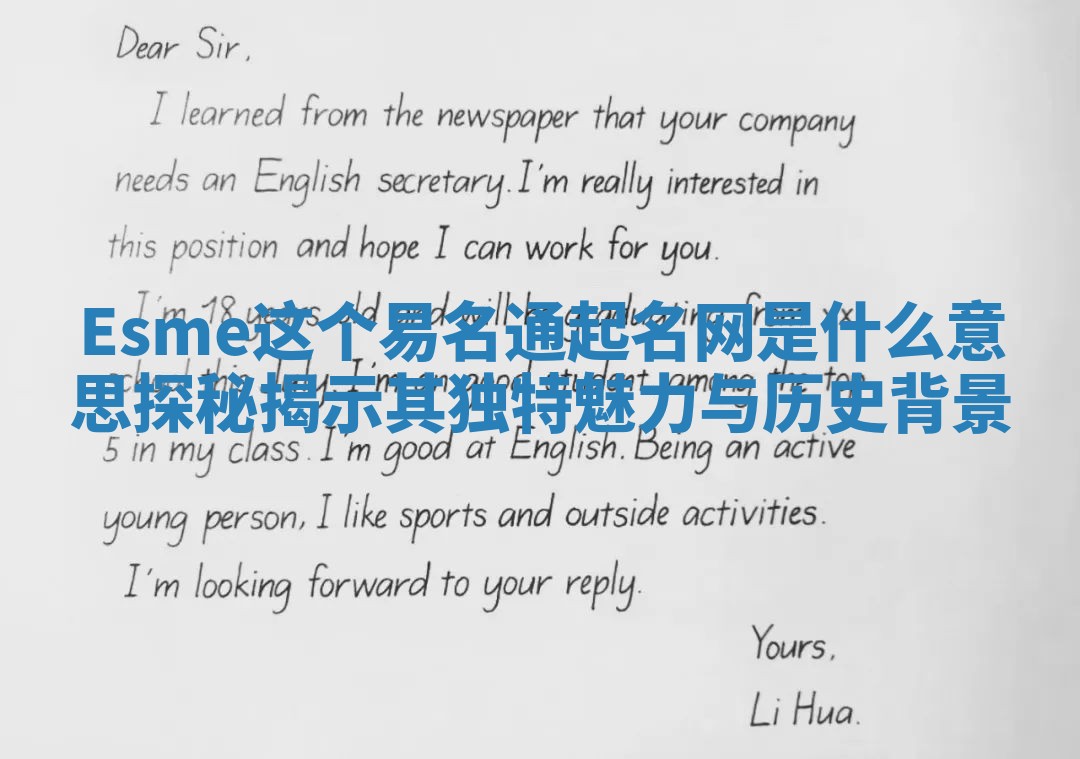 Dear Sir,
I learned from the newspaper that your company
needs an English secretary. I'm really interested in
this position and hope I can work for you.
I'm 18 years old and will be graduating from xx
Esme这个易名通起名网是什么意
school this July. I'm an good student among the top
思探秘揭示其独特魅力与历史背景
5 in my class. I'm good at English. Being an active
young person, I like sports and outside activities.
I'm looking forward to your reply.
Yours,
Li Hua.